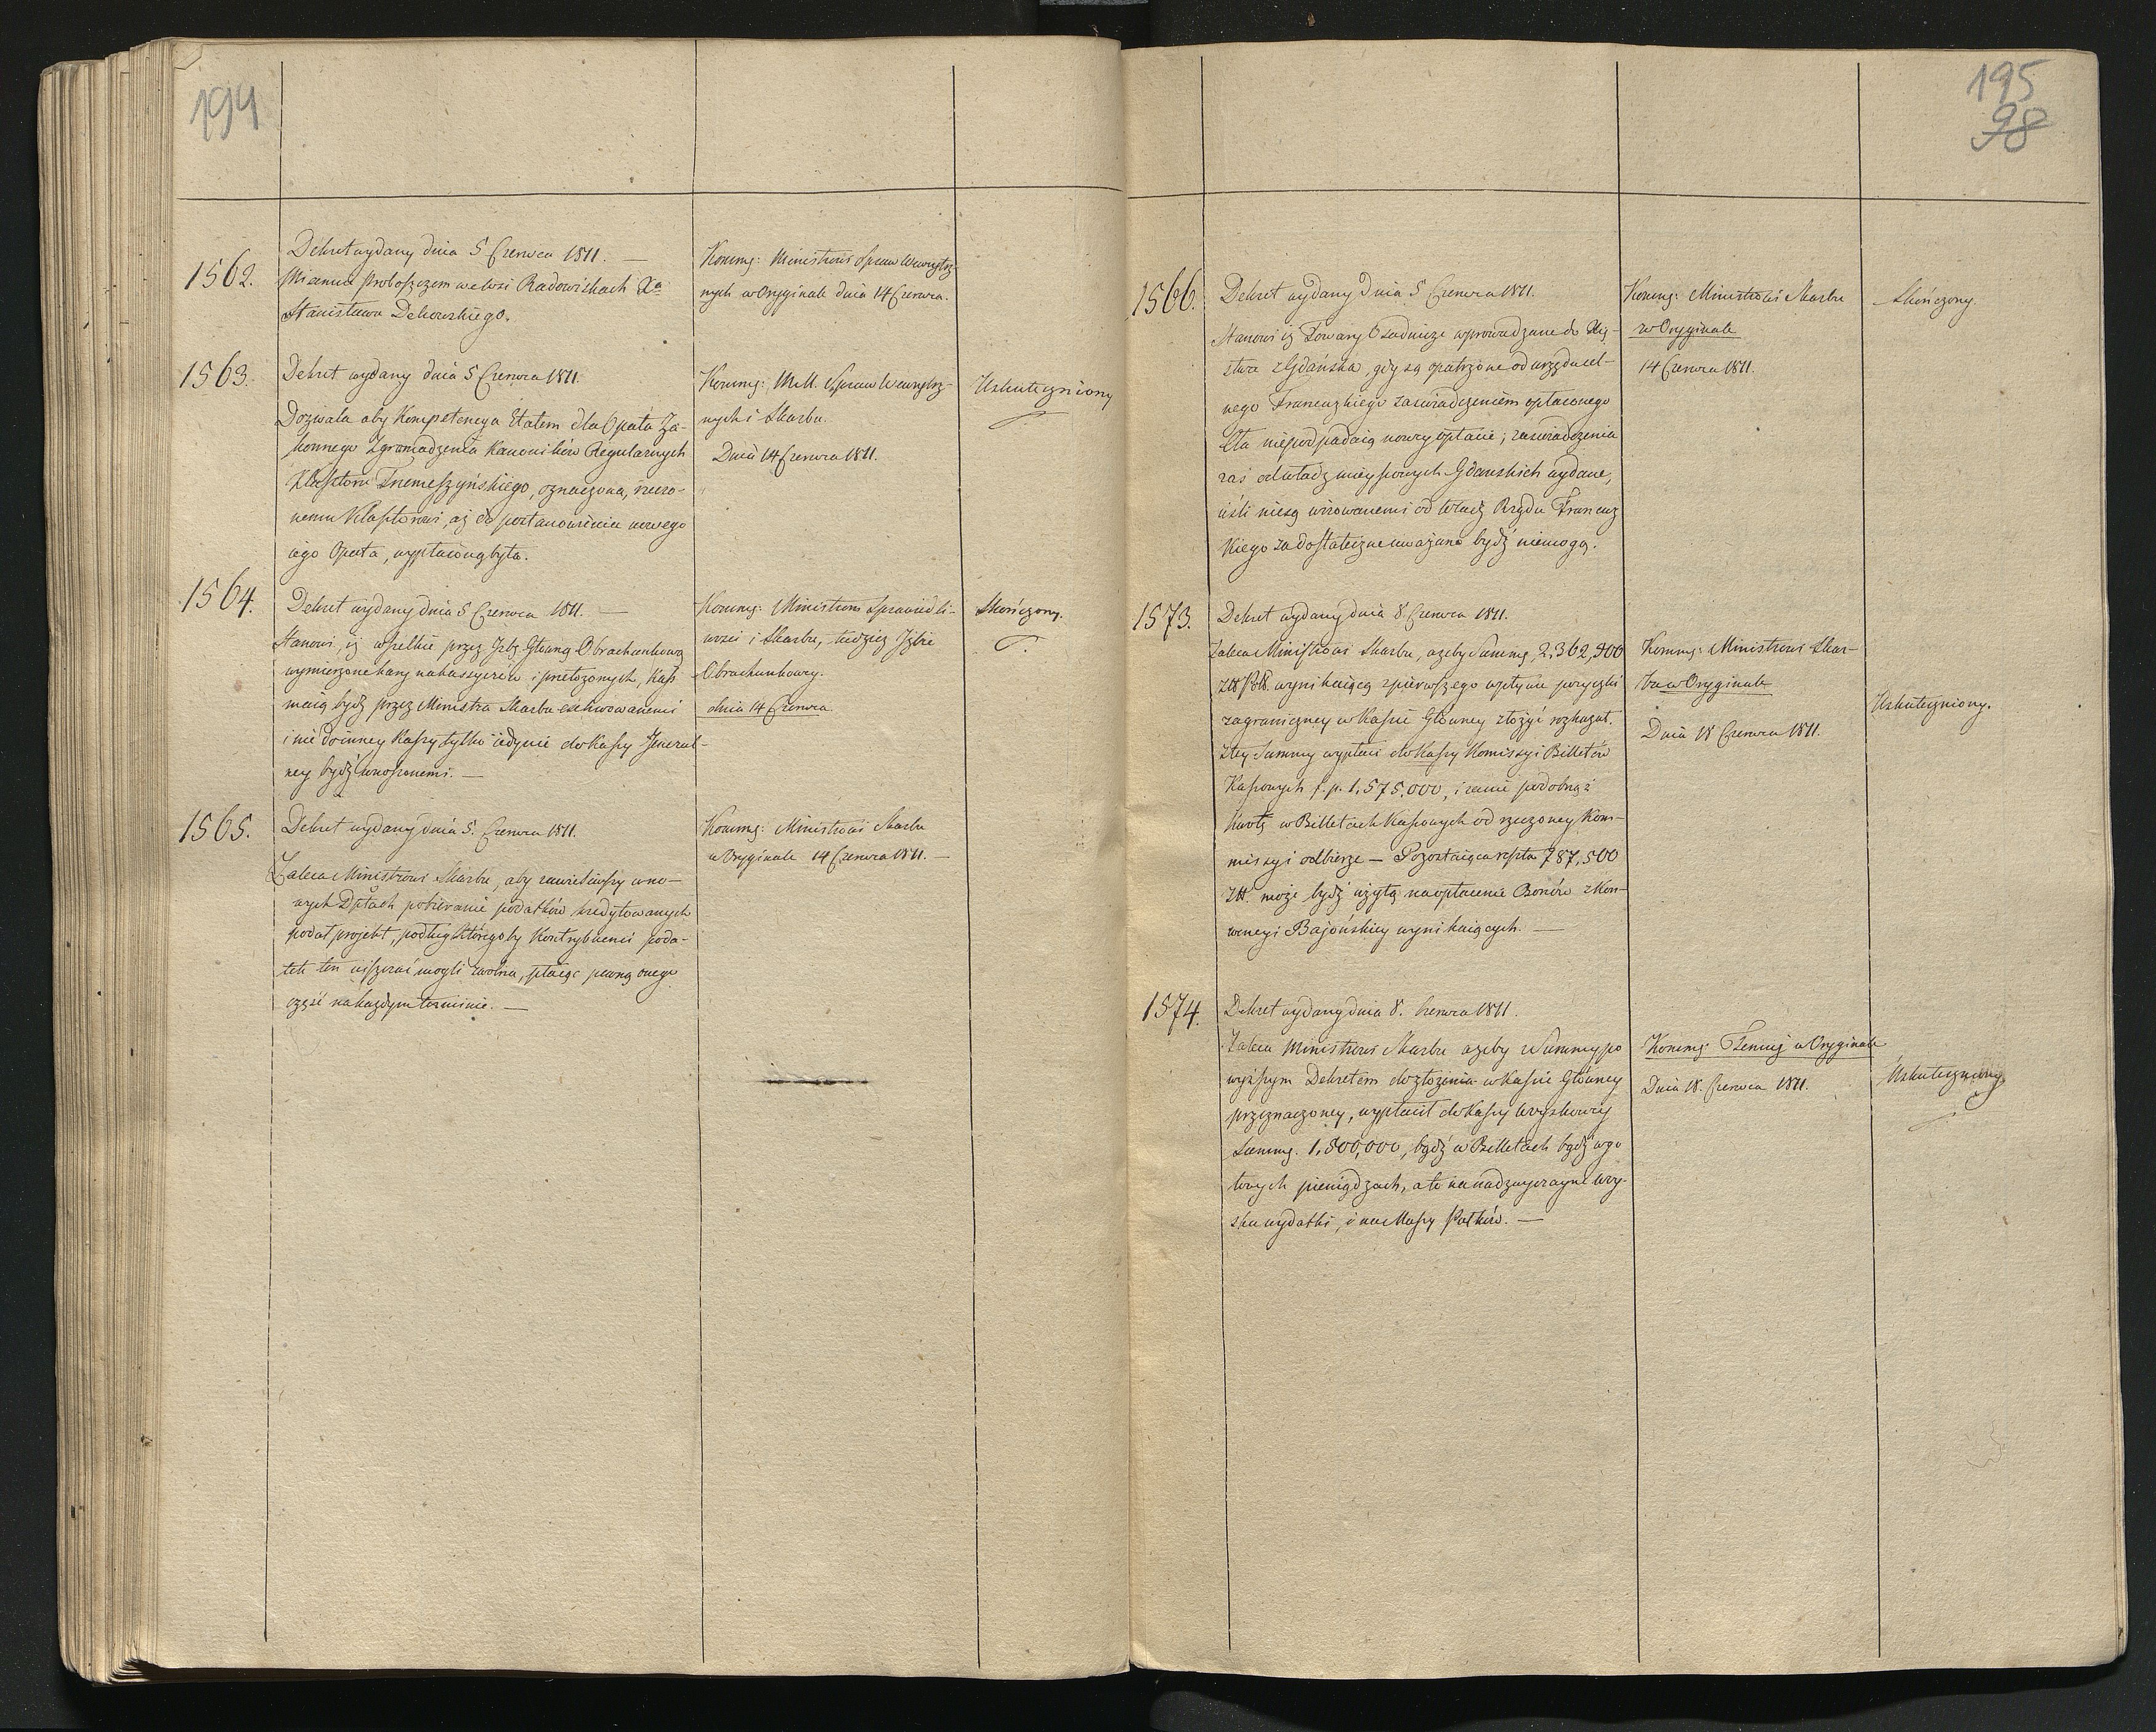 194
1562.
Dekret wydany dnia 5 Czerwca 1811. —
Mianuie Proboszczem we Wsi Radowiskach Xa
Stanisława Dekowskiego.
Kommg: Ministrowi Spraw Wewnętrz-
nych w Oryginale dnia 14 Czerwca.
1563.
Dekret wydany dnia 5 Czerwca 1811.
Dozwala aby Kompetencya Etatem dla Opata Za-
konnego Zgromadzenia Kanoników Regularnych
Klasztoru Trzemeszyńskiego, oznaczona, rzeczo-
nemu Klasztorowi, aż do postanowienia nowego
iego Opata, wypłaconą była.
Kommg: Mtt. Spraw Wewnętrz-
nych i Skarbu.
Dnia 14 Czerwca 1811.
Uskuteczniony
1564.
Dekret wydany dnia 5 Czerwca 1811. —
Stanowi, iż wszelkie przez Izbę Główną Obrachunkową
wymierzone kary na kassyerów i przełożonych, Kass
maią bydź przez Ministra Skarbu exekwowanemi
i nie do inney Kassy tylko iedynie do Kassy General-
ney bydź wnoszonemi. —
Kommg: Ministrom Sprawiedli-
wości i Skarbu, tudzież Izbie
Obrachunkowey.
dnia 14 Czerwca.
Skończony.
1565.
Dekret wydany dnia 5. Czerwca 1811.
Zaleca Ministrowi Skarbu, aby zawiesiwszy w no-
wych Dptach pobieranie podatków kredytowanych
podał projekt, podług którego by Kontrybuenci poda-
tek ten uiszczać mogli zwolna, płacąc pewną onego
część na każdym terminie. —
Kommg: Ministrowi Skarbu
w Oryginale 14 Czerwca 1811. —
195
98
1566.
Dekret wydany dnia 5 Czerwca 1811.
Stanowi iż Towary Osadnicze wprowadzane do Xię-
stwa z Gdańska, gdy są opatrzone od urzędu cel-
nego Francuzkiego zaświadczeniem opłaconego
Cła nie podpadaią nowey opłacie; zaświadczenia
zaś od władz mieyscowych Gdańskich wydane,
ieśli nie są wizowanemi od Władz Rządu Francuz
kiego za dostateczne uważane bydź niemogą.
Kommg: Ministrowi Skarbu
w Oryginale
14 Czerwca 1811.
Skończony.
1573.
Dekret wydany dnia 8. Czerwca 1811.
Zaleca Ministrowi Skarbu, ażeby Summę, 2,362,500
Złł Pols. wynikaiącą z pierwszego wpływu pożyczki
zagraniczney w Kassie Główney złożyć rozkazał.
Z tey Summy wypłaci do Kassy Komissyi Billetów
Kassowych f. p. 1,575,000, i zaraz podobnąż
kwotę w Billetach Kassowych od rzeczoney Kom-
missyi odbierze — Pozostaiąca reszta 787,500
Złł. może bydź użytą na opłacenie Bonów z Kon-
wencyi Bajońskiey wynikaiących. —
Kommg: Ministrowi Skar-
bu w Oryginale
Dnia 18 Czerwca 1811.
Uskuteczniony.
1574.
Dekret wydany dnia 8. Czerwca 1811.
Zaleca Ministrowi Skarbu ażeby z Summy po
wyższym Dekretem do złożenia w Kassie Główney
przeznaczoney, wypłacił do Kassy Woyskowey
Summę. 1,500,000, bądź w Billetach bądź w go
towych pieniądzach, a to na nadzwyczayne woy-
ska wydatki, i na Massy Pułków. —
Kommg: Temuż w Oryginale
Dnia 18. Czerwca 1811.
Uskuteczniony